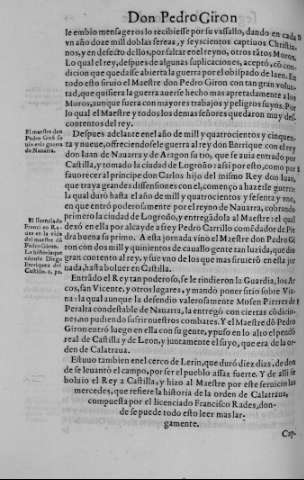 Don Pedro Giron
le embio mensageros lo recibiesse por su vassallo, dando en cada
vn año doze mil doblas sereas, y seyscientos captiuos Christia-
nos, y en defecto dellos, por faltar en el reyno, otros tãtos Moros.
Lo qual el rey, despues de algunas suplicaciones, aceptò, cõ con-
dicion que quedasse abierta la guerra por el obispado de Iaen. En
todo esto siruio el Maestre don Pedro Giron con tan gran volun-
tad, que quisiera la guerra auerse hecho mas apretadamente a los
Moros, aunque fuera con mayores trabajos y peligros suyos. Por
lo qual el Maestre y todos los demas señores quedaron muy des-
contentos del rey.
El maestre don
Pedro Girõ
esta guerra
de Nauarra.
Despues adelante en el año de mil y quatrocientos y cinquen-
ta y nueue, ofreciendosele guerra al rey don Enrique con el rey
don Iuan de Nauarra y de Aragon su tio, que se auia entrado por
Castilla, y tomado la ciudad de Logroño; assi por esto, como por
fauorecer al principe don Carlos hijo del mismo Rey don Iuan,
que traya grandes dissensiones con el, començo a hazerle guerra:
la qual durò hasta el año de mil y quatrocientos y sesenta y vno,
en que entrò poderosamente por el reyno de Nauarra, cobrando
primero la ciudad de Logroño, y entregãdola al Maestre: el qual
dexò en ella por alcayde a frey Pedro Carrillo comẽdador de Pie
dra buena su primo. A esta jornada vino el Maestre don Pedro Gi
ron con dos mil y quinientos de cauallo con tanta voluntad, que diò
gran contento al rey, y siue vno de los que mas siruierõ en ella jor
nada, hasta boluer en Castilla.
El licenciado
Francisco Ra-
des en la vida
del maestre dõ
Pedro Giron.
La historia que
escriue Diego
Enriquez del
Castillo. c.
Entrãdo el Rey tan poderoso, se le rindieron la Guardia, los Ar
cos, san Vicente, y otros lugares, y mando poner sitio sobre Via-
na: la qual aunque la defendio valerosamente Mosen Pierres de
Peralta condestable de Nauarra, la entregò con ciertas cõdicio-
nes, no pudiendo sufrir nuestros combates. Y el Maestre dõ Pedro
Giron entrò luego en ella con su gente, y puso en lo alto el pendõ
real de Castilla y de Leon, y juntamente el suyo, que era de la or-
den de Calatraua.
Estuuo tambien en el cerco de Lerin, que durò diez dias, de don
de se leuantò el campo, por ser el pueblo assaz fuerte. Y de alli se
boluio el Rey a Castilla, y hizo al Maestre por este seruicio
mercedes, que refiere la historia de la orden de Calatraua,
compuesta por el licenciado Francisco Rades, don-
de se puede todo esto leer mas lar-
gamente.
Cap-